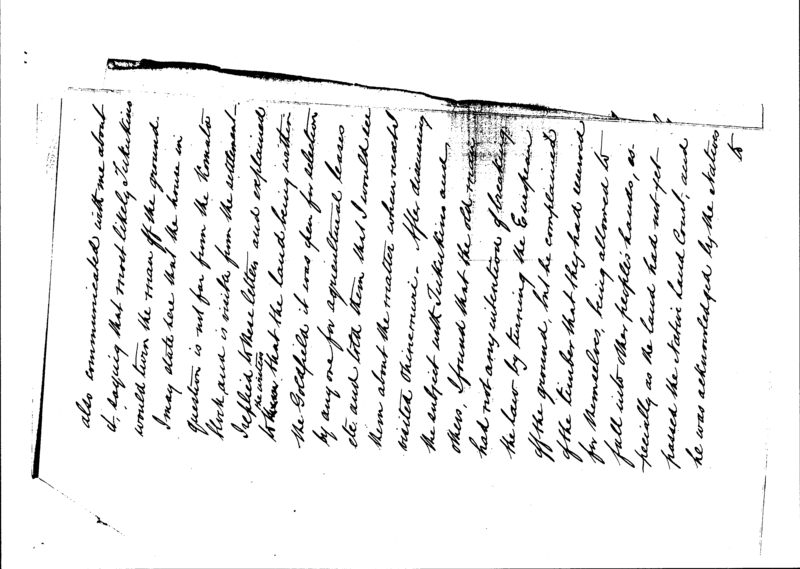 also communicated with me about
it, saying that most likely Tukukino
would turn the man off the ground.
I may state here that the house in
question is not far from the Komata
block and is visible from the settlement
I replied to these letters and explained
to the writers that the land being within
the Goldfield it was open for selection
by any one for agricultural leases
etc. and told them that I would see
them about the matter when next I
visited Ohinemuri. After discussing
the subject with Tukukino and
others, I found that the old man
had not any intention of breaking
the law by turning the European
off the ground, but he complained
of the timber that they had reserved
for themselves, being allowed to
fall into other people's hands, es-
pecially as the land had not yet
passed the Native Land Court, and
he was acknowledged by the Natives
to